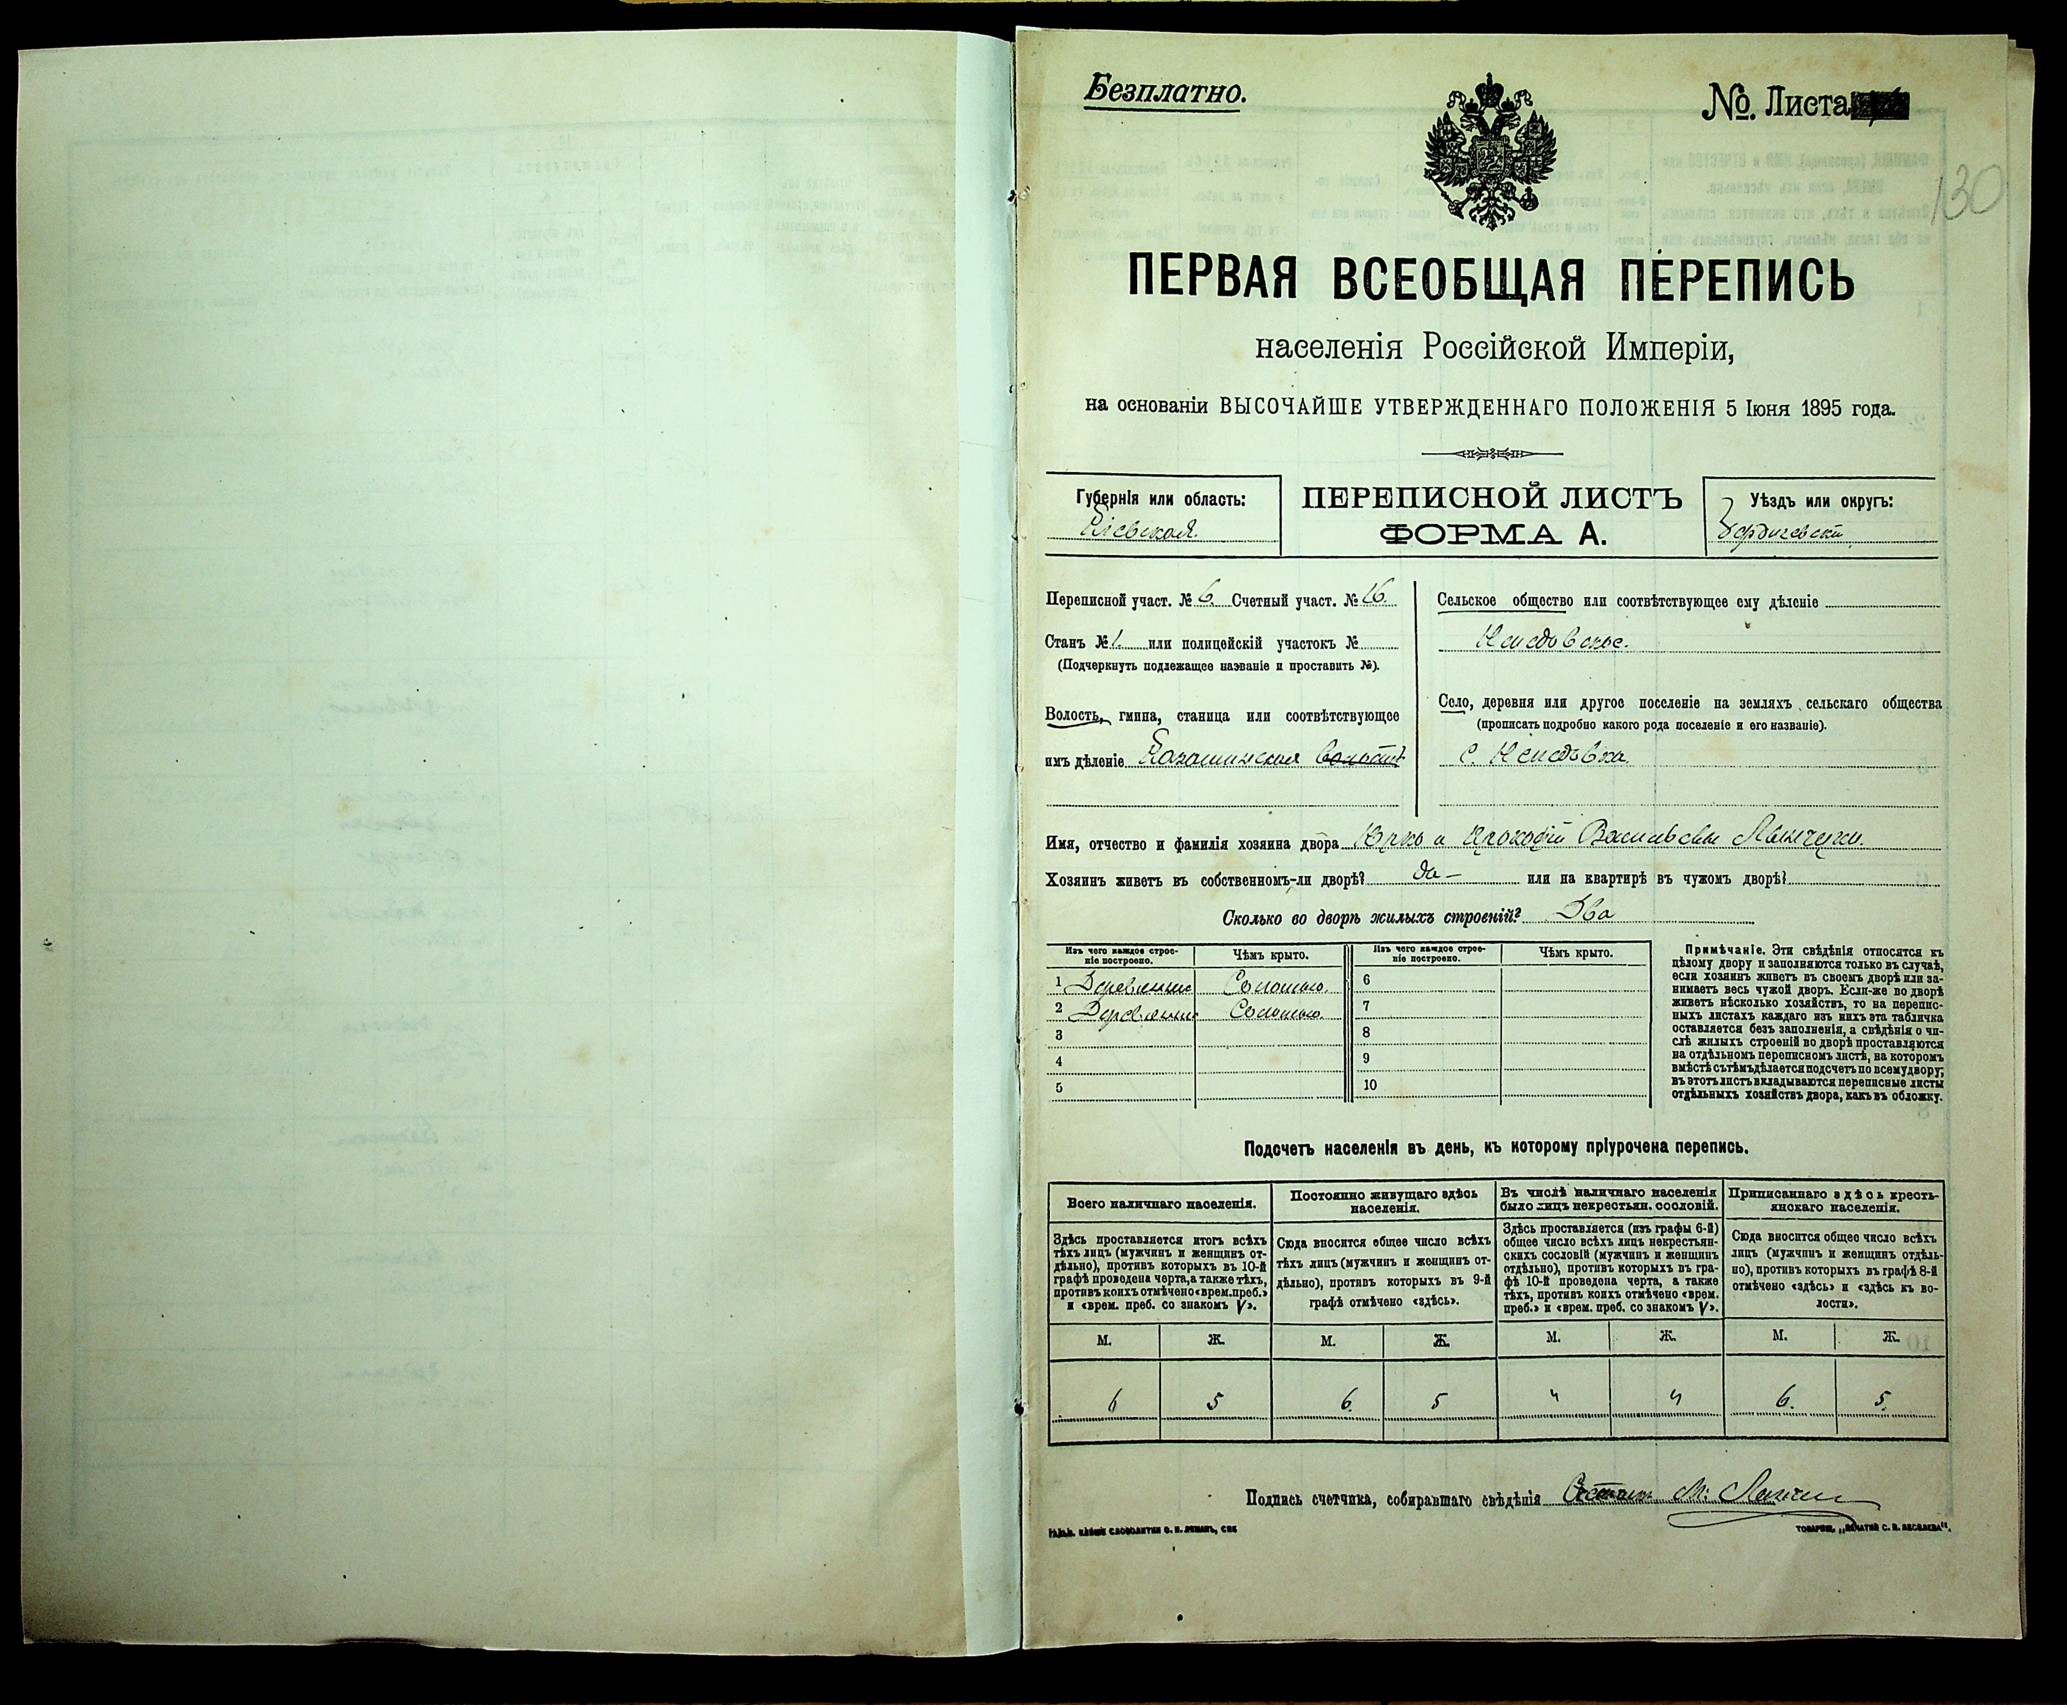 Безплатно.
№. Листа
130
ПЕРВАЯ ВСЕОБЩАЯ ПЕРЕПИСЬ
населенія Россійской Имперіи,
на основаніи ВЫСОЧАЙШЕ УТВЕРЖДЕННАГО ПОЛОЖЕНІЯ 5 Іюня 1895 года.
Губернія или область:
Кіевская.
ПЕРЕПИСНОЙ ЛИСТЪ
ФОРМА А.
Уѣздъ или округъ:
Бердичевскій
Переписной участ. № 6. Счетный участ. № 16.
Станъ № 1. или полицейскій участокъ №
(Подчеркнуть подлежащее названіе и проставить №).
Волость, гмина, станица или соотвѣтствующее
имъ дѣленіе волость
Сельское общество или соотвѣтствующее ему дѣленіе
Село, деревня или другое поселеніе на земляхъ сельскаго общества
(прописать подробно какого рода поселеніе и его названіе).
с.
Имя, отчество и фамилія хозяина двора Юрко и Прокофій Васильевы
Хозяинъ живетъ въ собственномъ-ли дворѣ? да – или на квартирѣ въ чужомъ дворѣ?
Сколько во дворѣ жилыхъ строеній? Два
Изъ чего каждое строе-
ніе построено.
Чѣмъ крыто.
Изъ чего каждое строе-
ніе построено.
Чѣмъ крыто.
1 Деревянные Соломою. 6
2 Деревянные Соломою. 7
3 8
4 9
5 10
Примѣчаніе. Эти свѣдѣнія относятся къ
цѣлому двору и заполняются только въ случаѣ,
если хозяинъ живетъ въ своемъ дворѣ или за-
нимаетъ весь чужой дворъ. Если-же во дворѣ
живетъ нѣсколько хозяйствъ, то на перепис-
ныхъ листахъ каждаго изъ нихъ эта табличка
оставляется безъ заполненія, а свѣдѣнія о чи-
слѣ жилыхъ строеній во дворѣ проставляются
на отдѣльномъ переписномъ листѣ, на которомъ
вмѣстѣ съ тѣмъ дѣлается подсчетъ по всему двору;
въ этотъ листъ вкладываются переписные листы
отдѣльныхъ хозяйствъ двора, какъ въ обложку.
Подсчетъ населенія въ день, къ которому пріурочена перепись.
Всего наличнаго населенія.
Здѣсь проставляется итогъ всѣхъ
тѣхъ лицъ (мужчинъ и женщинъ от-
дѣльно), противъ которыхъ въ 10-й
графѣ проведена черта, а также тѣхъ,
противъ коихъ отмѣчено «врем. преб.»
и «врем. преб. со знакомъ V».
Постоянно живущаго здѣсь
населенія.
Сюда вносится общее число всѣхъ
тѣхъ лицъ (мужчинъ и женщинъ от-
дѣльно), противъ которыхъ въ 9-й
графѣ отмѣчено «здѣсь».
Въ числѣ наличнаго населенія
было лицъ некрестьян. сословій.
Здѣсь проставляется (изъ графы 6-й)
общее число всѣхъ лицъ некрестьян-
скихъ сословій (мужчинъ и женщинъ
отдѣльно), противъ которыхъ въ гра-
фѣ 10-й проведена черта, а также
тѣхъ, противъ коихъ отмѣчено «врем.
преб.» и «врем. преб. со знакомъ V».
Приписаннаго здѣсь кресть-
янскаго населенія.
Сюда вносится общее число всѣхъ
лицъ (мужчинъ и женщинъ отдѣль-
но), противъ которыхъ въ графѣ 8-й
отмѣчено «здѣсь» и «здѣсь къ во-
лости».
М. Ж. М. Ж. М. Ж. М. Ж.
6 5 6. 5 " " 6. 5.
Подпись счетчика, собиравшаго свѣдѣнія